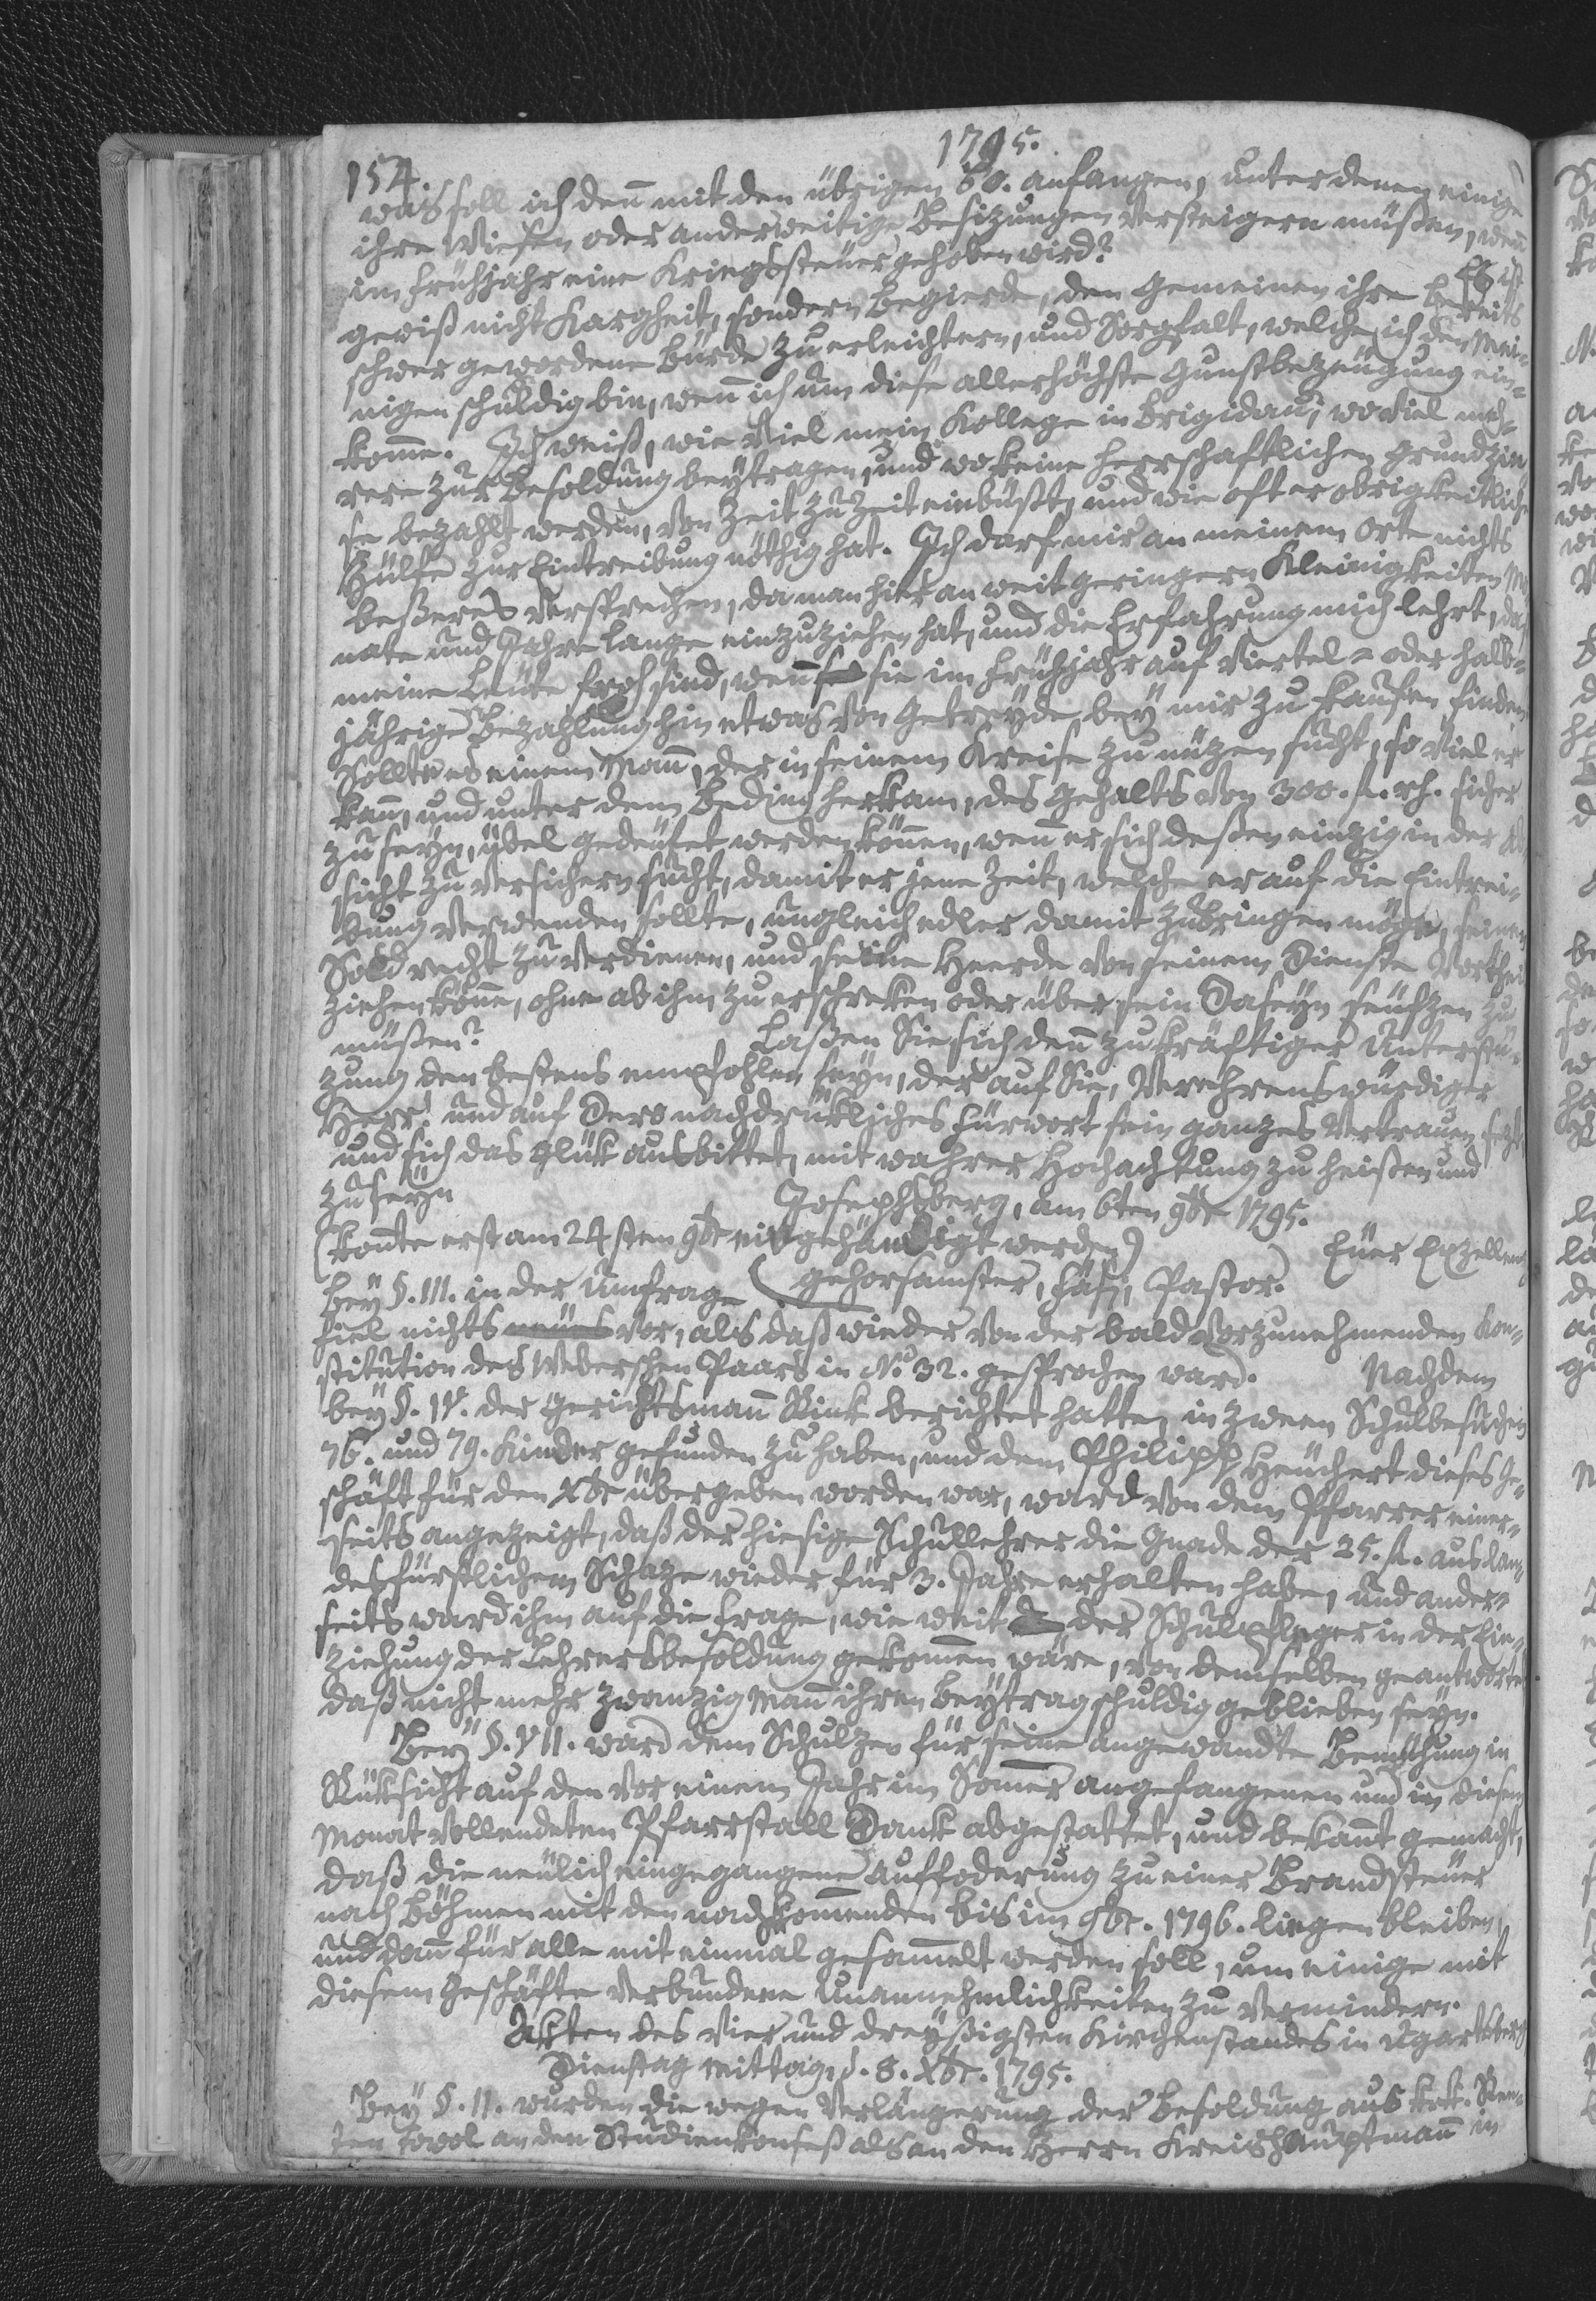 154
1795.
was soll ich deñ mit den übrigen 60. anfangen, unter denen einige
ihre Wiesen oder anderweitige Besizungen versteigern müßen, weñ
im Frühjahr eine Kriegssteuer gehoben wird? Es ist
gewiß nicht Kargheit, sondern Begierde, den Gemeinen ihre bereits
schwer gewordene Bürde zu erleichtern, und Sorgfalt, welche ich den Mei-
nigen schuldig bin, weñ ich um diese allerhöchste Gunstbezeugung ein-
kom̃e. Ich weiß, wie viel mein Kollege in Brigidau, wo viel meh-
rere zur Besoldung beytragen, und wo keine herrschaftlichen Grundzin
se bezahlt werden, von Zeit zu Zeit einbüßt, und wie oft er obrigkeitliche
Hülfe zur Eintreibung nöthig hat. Ich darf mir an meinem Orte nichts
beßeres versprechen, da man hier an weit geringern Kleinigkeiten Mo
nate und Jahre lange einzuziehen hat, und die Erfahrung mich lehrt, daß
meine Leute froh sind, weñ sie im Frühjahr auf viertel- oder halb-
jährige Bezahlung hin etwas von Getreyde bey mir zu kaufen finden
Sollte es einem Mañ, der in seinem Kreise zu nüzen sucht, so viel er
kañ, und unter dem Beding herkam, des Gehalts von 300. fl. rh. sicher
zu seyn, übel gedeutet werden köñen, weñ er sich deßen einzig in der Ab
sicht zu versichern sucht, damit er jene Zeit, welche er auf die Eintrei-
bung verwenden sollte, ungleich edler damit zubringen möge, seinen
Sold recht zu verdienen, und seine Heerde von seinem Dienste Vortheil
ziehen köñe, ohne ab ihm zu erschreken oder über sein Daseyn seufzen zu
müßen? Laßen Sie sich deñ zu kräftiger Unterstü-
zung den bestens empfohlen seyn, der auf Sie, Verehrenswürdiger
Herr! und auf Dero nachdrükliches Fürwort sein ganzes Vertrauen sezt,
und sich das Glük ausbittet, mit wahrer Hochachtung zu heißen und
zu seyn Josephsberg, am 6ten 9br 1795.
(koñte erst am 24sten 9br eingehändigt werden) Euer Exzellenz
Bey §. III. in der Umfrage gehorsamster, Fäsi, Pastor.
fiel nichts neues vor, als daß wieder von der bald vorzunehmenden Kon-
stitution des Weberschen Paars in No 32. gesprochen ward. Nachdem
bey §. IV. der Gerichtsmañ Rink berichtet hatte, in zween Schulbesuchen
76. und 79. Kinder gefunden zu haben, und dem Philipp Heuchert dieses Ge-
schäft für den Xbr übergeben worden war, ward von dem Pfarrer einer-
seits angezeigt, daß der hiesige Schullehrer die Gnade der 25. fl. aus dem lan-
desfürstlichen Schaze wieder für 3. Jahre erhalten habe, und ander-
seits ward ihm auf die Frage, wie weit der Schulpfleger in der Ein-
ziehung der Lehrersbesoldung gekom̃en wäre, von demselben geantwortet
daß nicht mehr zwanzig Mañ ihren Beytrag schuldig geblieben seyn.
Bey §. VII. ward dem Schulzen für seine angewandte Bemühung in
Rüksicht auf den vor einem Jahr im Som̃er angefangenen und in diesem
Monat vollendeten Pfarrstall Dank abgestattet, und bekañt gemacht,
daß die neulich eingegangene Auffoderung zu einer Brandsteuer
nach Böhmen mit den nachkom̃enden bis im 9br. 1796. liegen bleiben,
und dañ für alle mit einmal gesam̃elt werden soll, um einige mit
diesem Geschäfte verbundene Unannehmlichkeiten zu vermindern.
Akten des vier und dreyßigsten Kirchenstandes in Ugartsberg
Dienstag Mittag d. 8. Xbr. 1795.
Bey §. II. wurden die wegen Verlängerung der Besoldung aus k. k. Ren-
ten sowol an den Studienkonseß als an den Herrn Kreishauptmañ in